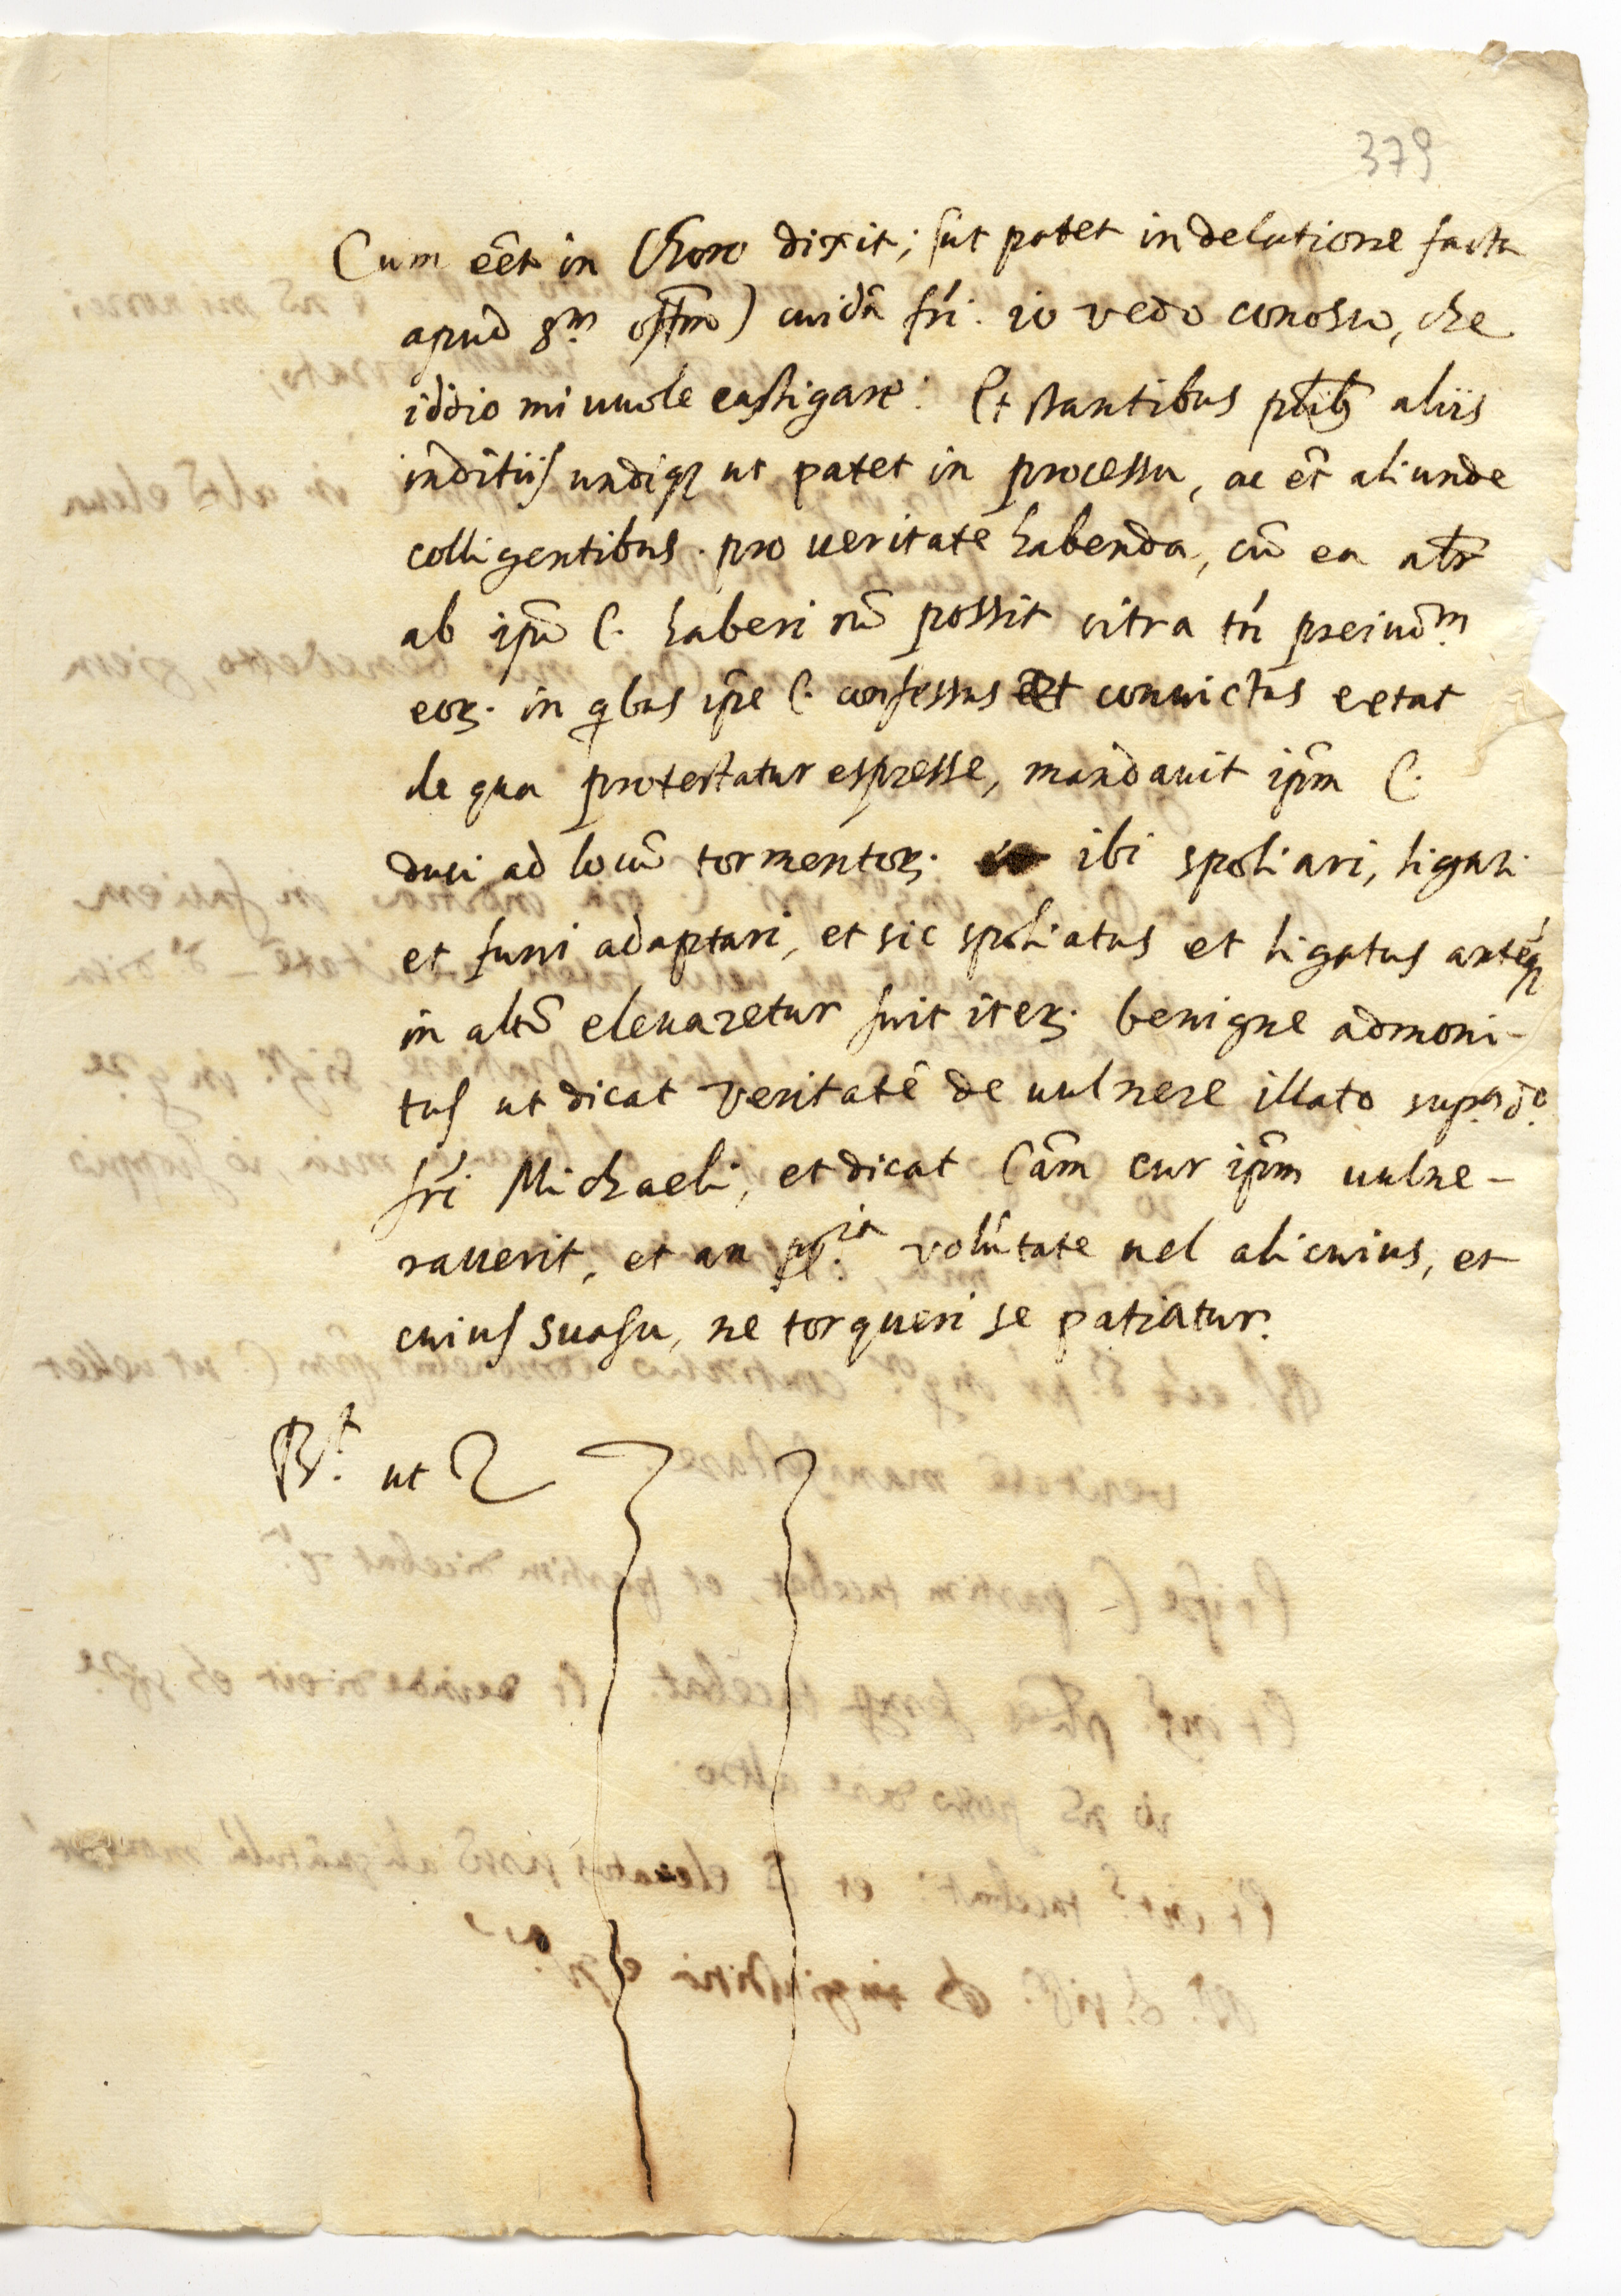 379
Cum eēt in Choro dixit; sut patet in delatione facta
apud 8.m ) cuidā frī. io vedo conosco, che
iddio mi vuole castigare. Et stantibus pltib3 aliis
inditiis undiq3 ut patet in processu, ac et̄ aliunde
colligentibus. pro ueritate habenda, cū ea altr̄
ab ipō C. haberi nō possit citra tn̄ preiudm.
eor3. in qbus ipse C. confessus et convictus extat
de qua protestatur espresse, mandavit ipm̄ C.
duci ad locū tormentor3. ibi spoliari, ligari
et funi adaptari, et sic spoliatus et ligatus anteq3
in altū elevaretur fuit iter3. benigne admoni-
tus ut dicat veritatē de vulnere illato sup.a d.o
frī Michaeli, et dicat Cām cur ipm̄ vulne-
raverit, et an voluntate vel alicuius, et
cuius suasu, ne torqueri se patiatur.
R.t ut 2